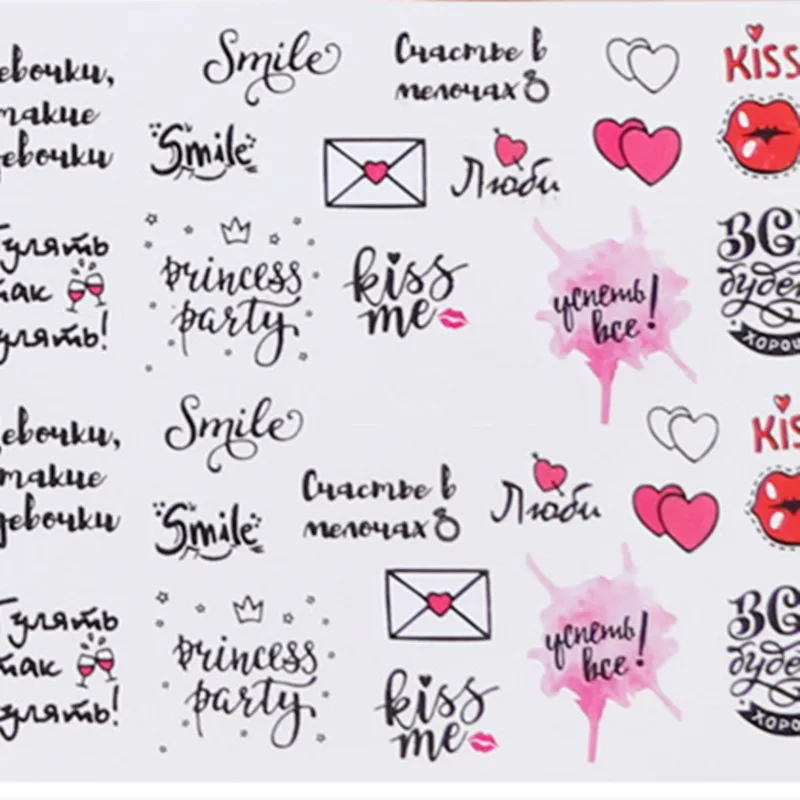 евочки,
такие
девочки
Smile
Счастье в
мелочах
KISS
Smile
Люби
Гулять
так
улять!
princess
party
kiss
me
успеть
все!
ВС
будет
ХОРОШ
девочки,
такие
девочки
Smile
KIS
Smile
Счастье в
мелочах
Люби
Гулять
так
гулять!
princess
party
kiss
me
успеть
все!
ВС
будет
ХОРО